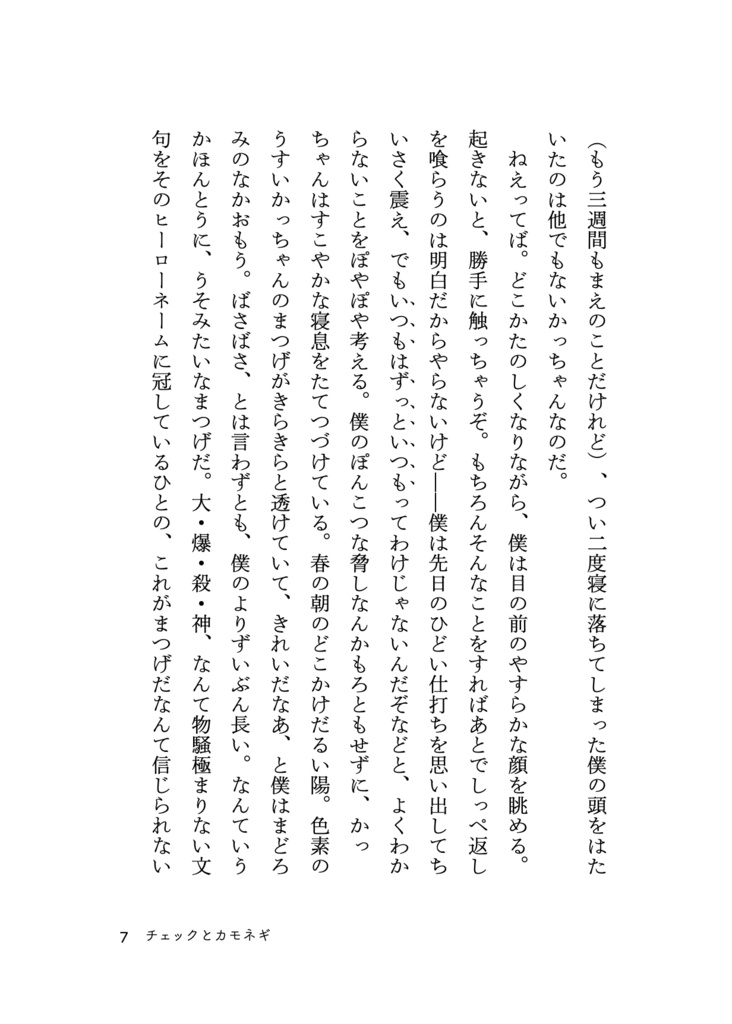 （もう三週間もまえのことだけれど）、つい二度寝に落ちてしまった僕の頭をはた
いたのは他でもないかっちゃんなのだ。
　ねえってば。どこかたのしくなりながら、僕は目の前のやすらかな顔を眺める。
起きないと、勝手に触っちゃうぞ。もちろんそんなことをすればあとでしっぺ返し
を喰らうのは明白だからやらないけど――僕は先日のひどい仕打ちを思い出してち
いさく震え、でもいつもはずっといつもってわけじゃないんだぞなどと、よくわか
らないことをぽやぽや考える。僕のぽんこつな脅しなんかもろともせずに、かっ
ちゃんはすこやかな寝息をたてつづけている。春の朝のどこかけだるい陽。色素の
うすいかっちゃんのまつげがきらきらと透けていて、きれいだなあ、と僕はまどろ
みのなかおもう。ばさばさ、とは言わずとも、僕のよりずいぶん長い。なんていう
かほんとうに、うそみたいなまつげだ。大・爆・殺・神、なんて物騒極まりない文
句をそのヒーローネームに冠しているひとの、これがまつげだなんて信じられない
7　チェックとカモネギ